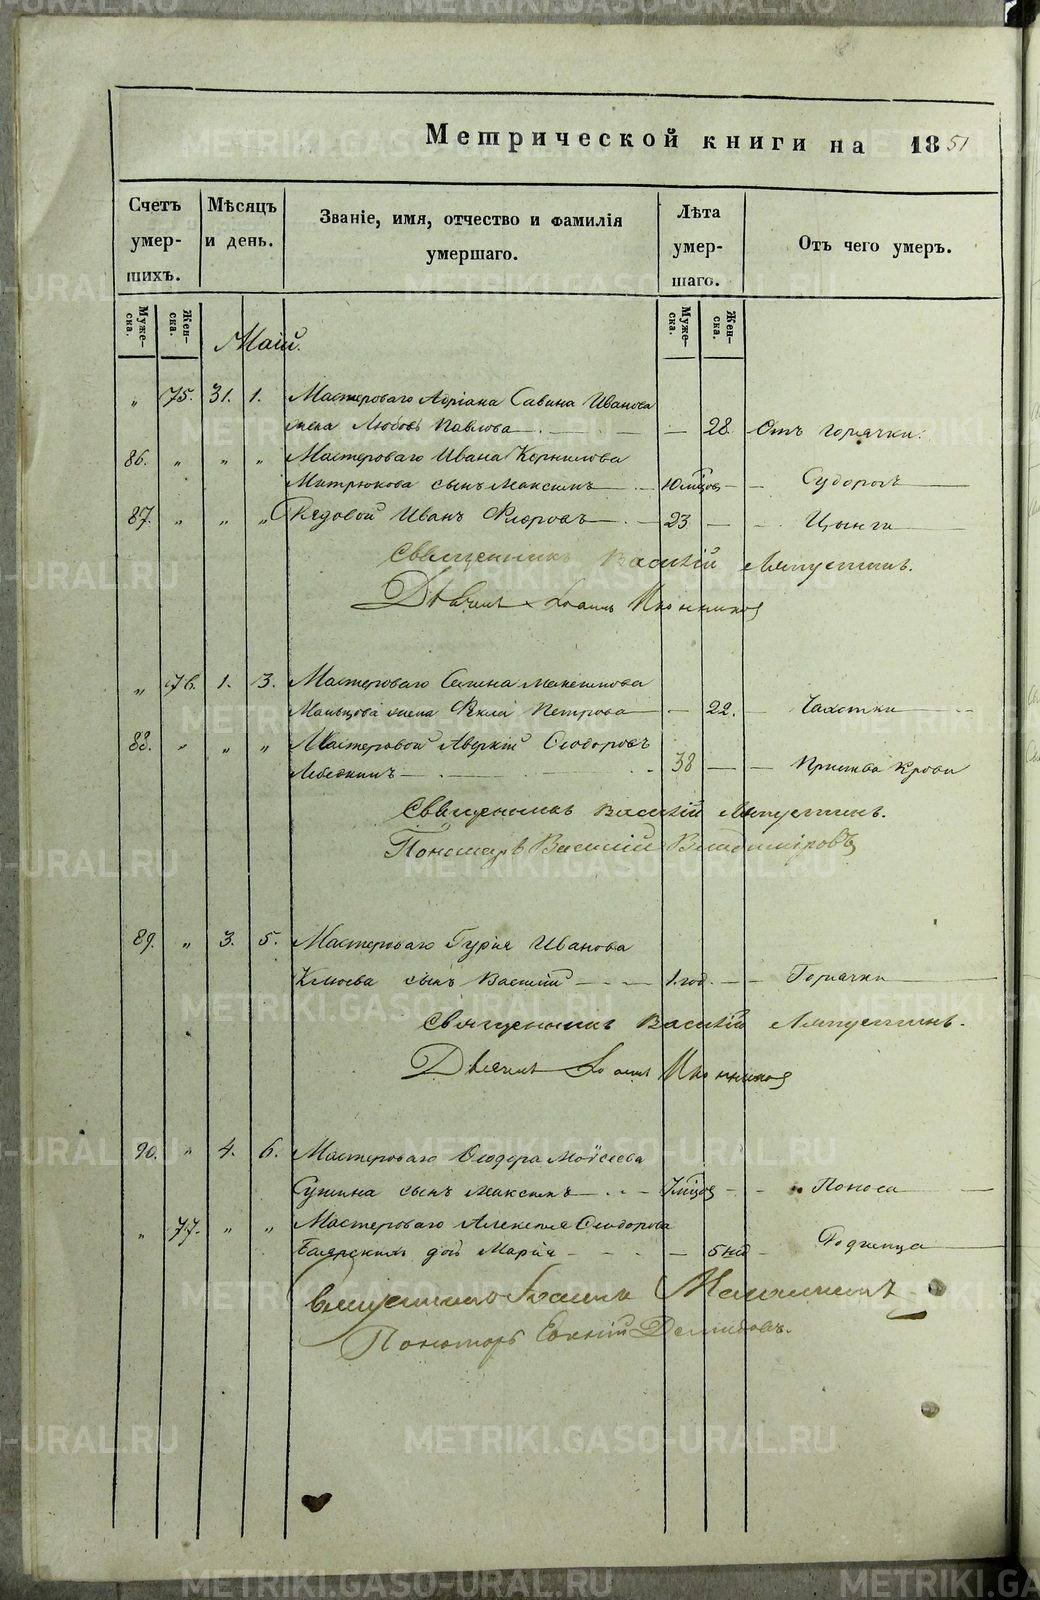 Метрической книги на 1851
Счетъ умер- шихъ.
Мѣсяцъ и день.
Званіе, имя, отчество и фамилія умершаго.
Лѣта умер- шаго.
Отъ чего умеръ.
Муже- ска.
Жен- ска.
Муже- ска.
Жен- ска.
Маій.
„ 75. 31. 1. Мастероваго Адріана Савина Иванова
жена Любовь Павлова — 28. Отъ горячки.
86. „ „ „ Мастероваго Ивана Корнилова
Митрюкова сынъ Максимъ — 10 мѣсцов — Судорогъ
87. „ „ „ Рядовой Иванъ — 23 — Цынги
Священникъ Василій Ляпустинъ.
Дьячекъ Іоаннъ Иконниковъ
„ 76. 1. 3. Мастероваго
Мальцова жена Ѳекла Петрова — 22. — Чахотки
88. „ „ „ Мастеровой Аверкій Ѳеодоровъ
Лебедкинъ — 38 — Крови
Священникъ Василій Ляпустинъ.
Пономарь Василій Владиміровъ
89. „ 3. 5. Мастероваго Гурія Иванова
Клюева сынъ Василій — 1. год. — Горячки
Священникъ Василій Ляпустинъ.
Дьячекъ Іоаннъ Иконниковъ
90. „ 4. 6. Мастероваго Ѳеодора Моѵсеева
сынъ Максимъ — 7 мѣсцов — Поноса
„ 77. „ „ Мастероваго Алексѣя Ѳеодорова
дочь Марія — 5 нед — Родимца
Іоаннъ
Пономарь Евѳимій Демидовъ.
METRIKI.GASO-URAL.RU